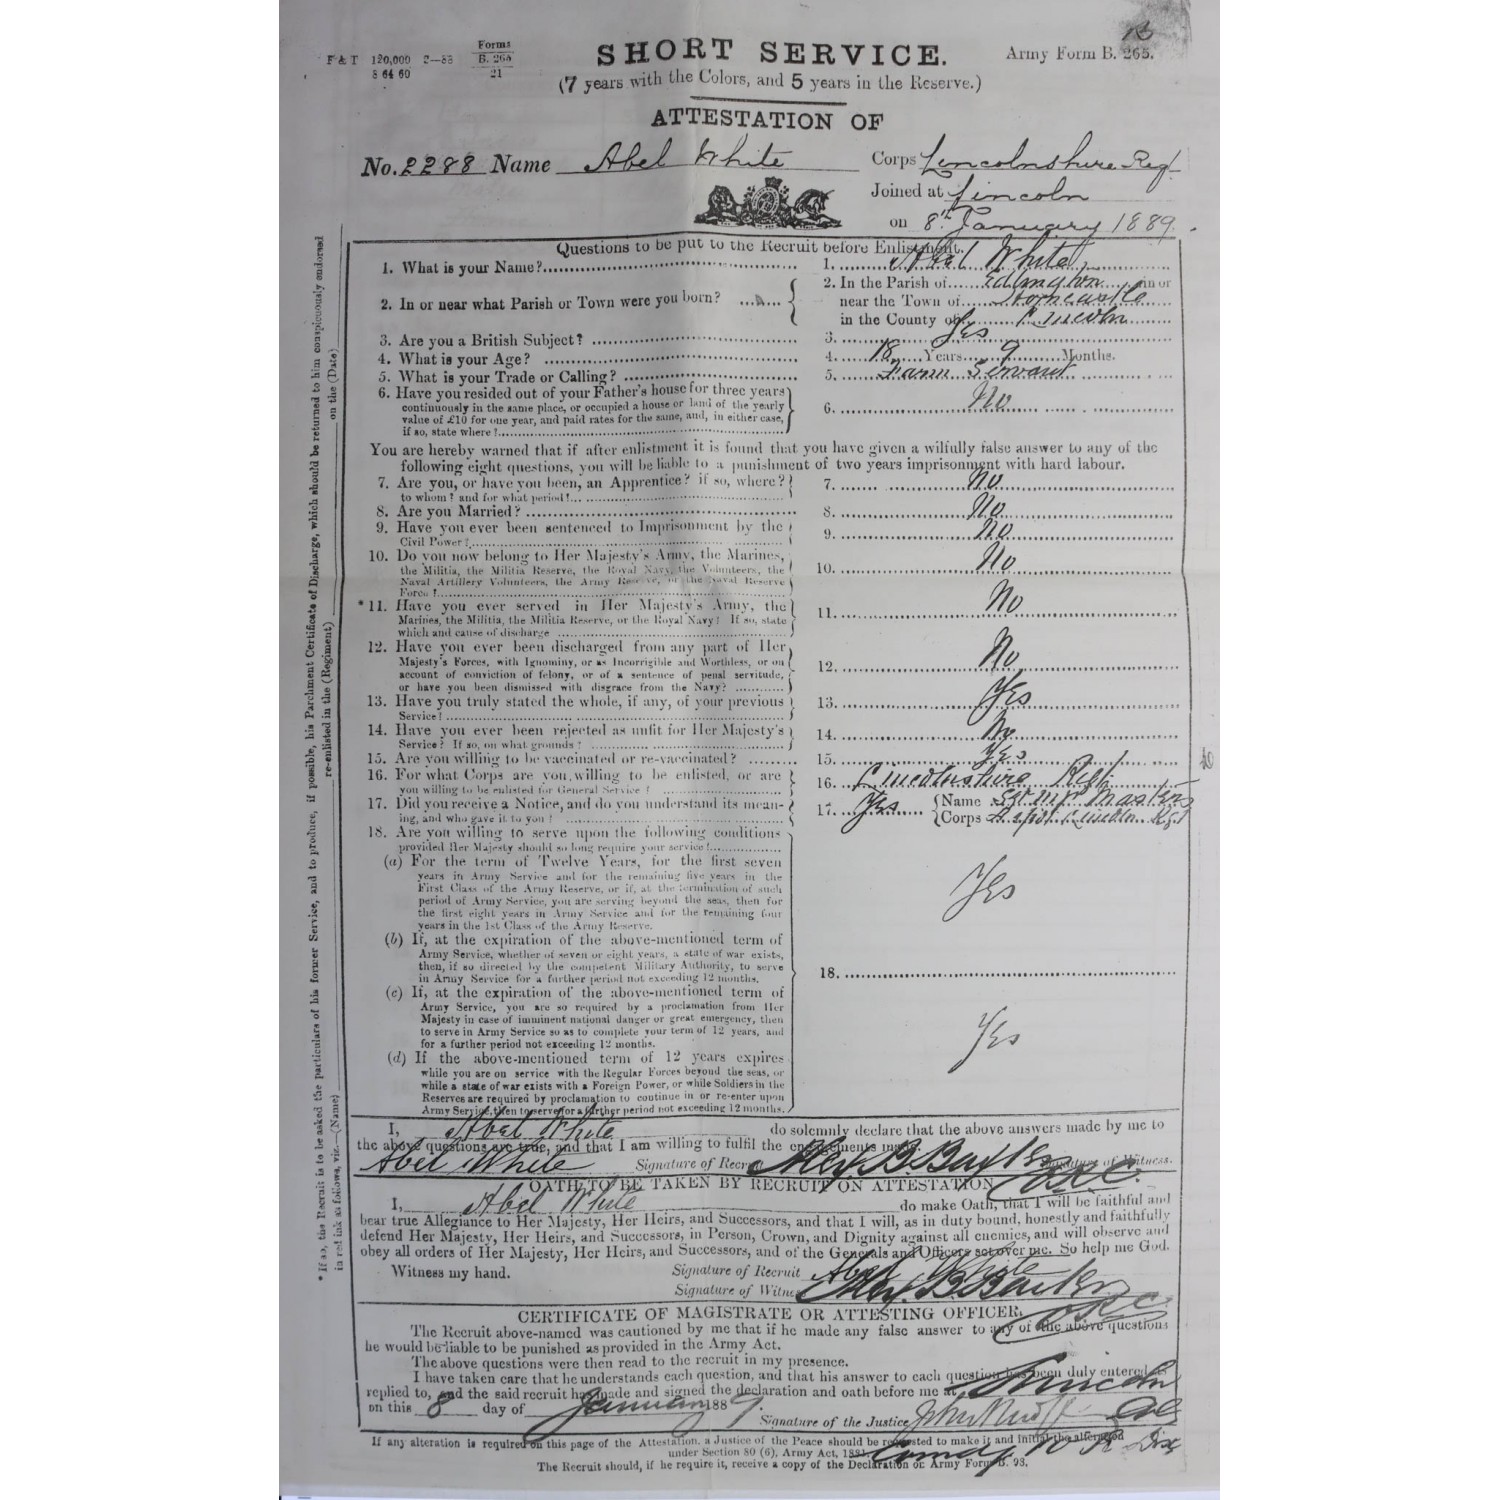 18
F & T 120,000 2—88 Forms B. 265 21
8 64 60
SHORT SERVICE. Army Form B. 265.
(7 years with the Colors, and 5 years in the Reserve.)
ATTESTATION OF
No. 2288 Name Abel White Corps Lincolnshire Reg
Joined at Lincoln
on 8th January 1889.
Questions to be put to the Recruit before Enlistment.
1. What is your Name? 1. Abel White
2. In or near what Parish or Town were you born? 2. In the Parish of Edlington in or
near the Town of Horncastle
in the County of Lincoln
3. Are you a British Subject? 3. Yes
4. What is your Age? 4. 18 Years 9 Months.
5. What is your Trade or Calling? 5. Farm Servant
6. Have you resided out of your Father's house for three years
continuously in the same place, or occupied a house or land of the yearly
value of £10 for one year, and paid rates for the same, and, in either case,
if so, state where? 6. No
You are hereby warned that if after enlistment it is found that you have given a wilfully false answer to any of the
following eight questions, you will be liable to a punishment of two years imprisonment with hard labour.
7. Are you, or have you been, an Apprentice? if so, where?
to whom? and for what period? 7. No
8. Are you Married? 8. No
9. Have you ever been sentenced to Imprisonment by the
Civil Power? 9. No
10. Do you now belong to Her Majesty's Army, the Marines,
the Militia, the Militia Reserve, the Royal Navy, the Volunteers, the
Naval Artillery Volunteers, the Army Reserve, or the Naval Reserve
Force? 10. No
* 11. Have you ever served in Her Majesty's Army, the
Marines, the Militia, the Militia Reserve, or the Royal Navy? If so, state
which and cause of discharge 11. No
12. Have you ever been discharged from any part of Her
Majesty's Forces, with Ignominy, or as Incorrigible and Worthless, or on
account of conviction of felony, or of a sentence of penal servitude,
or have you been dismissed with disgrace from the Navy? 12. No
13. Have you truly stated the whole, if any, of your previous
Service? 13. Yes
14. Have you ever been rejected as unfit for Her Majesty's
Service? If so, on what grounds? 14. No
15. Are you willing to be vaccinated or re-vaccinated? 15. Yes
16. For what Corps are you willing to be enlisted, or are
you willing to be enlisted for General Service? 16. Lincolnshire Regt
17. Did you receive a Notice, and do you understand its mean-
ing, and who gave it to you? 17. Yes Name Masters
Corps Depot Lincoln Rgt
18. Are you willing to serve upon the following conditions
provided Her Majesty should so long require your service?
(a) For the term of Twelve Years, for the first seven
years in Army Service and for the remaining five years in the
First Class of the Army Reserve, or if, at the termination of such
period of Army Service, you are serving beyond the seas, then for
the first eight years in Army Service and for the remaining four
years in the 1st Class of the Army Reserve.
Yes
(b) If, at the expiration of the above-mentioned term of
Army Service, whether of seven or eight years, a state of war exists,
then, if so directed by the competent Military Authority, to serve
in Army Service for a further period not exceeding 12 months.
18.
(c) If, at the expiration of the above-mentioned term of
Army Service, you are so required by a proclamation from Her
Majesty in case of imminent national danger or great emergency, then
to serve in Army Service so as to complete your term of 12 years, and
for a further period not exceeding 12 months.
Yes
(d) If the above-mentioned term of 12 years expires
while you are on service with the Regular Forces beyond the seas, or
while a state of war exists with a Foreign Power, or while Soldiers in the
Reserves are required by proclamation to continue in or re-enter upon
Army Service, then to serve for a further period not exceeding 12 months.
I, Abel White do solemnly declare that the above answers made by me to
the above questions are true, and that I am willing to fulfil the engagements made.
Abel White Signature of Recruit Alex. B. Baxter Signature of Witness.
OATH TO BE TAKEN BY RECRUIT ON ATTESTATION
I, Abel White do make Oath, that I will be faithful and
bear true Allegiance to Her Majesty, Her Heirs, and Successors, and that I will, as in duty bound, honestly and faithfully
defend Her Majesty, Her Heirs, and Successors, in Person, Crown, and Dignity against all enemies, and will observe and
obey all orders of Her Majesty, Her Heirs, and Successors, and of the Generals and Officers set over me. So help me God.
Witness my hand. Signature of Recruit Abel White
Signature of Witness Alex. B. Baxter
CERTIFICATE OF MAGISTRATE OR ATTESTING OFFICER.
The Recruit above-named was cautioned by me that if he made any false answer to any of the above questions
he would be liable to be punished as provided in the Army Act.
The above questions were then read to the recruit in my presence.
I have taken care that he understands each question, and that his answer to each question has been duly entered as
replied to, and the said recruit has made and signed the declaration and oath before me at Lincoln
on this 8 day of January 1889.
Signature of the Justice John Col
If any alteration is required on this page of the Attestation, a Justice of the Peace should be requested to make it and initial the alteration
under Section 80 (6), Army Act, 1881. Comdg 10 R Dist
The Recruit should, if he require it, receive a copy of the Declaration on Army Form B. 93.
* If so, the Recruit is to be asked the particulars of his former Service, and to produce, if possible, his Parchment Certificate of Discharge, which should be returned to him conspicuously endorsed
in red ink as follows, viz.—(Name) re-enlisted in the (Regiment) on the (Date)